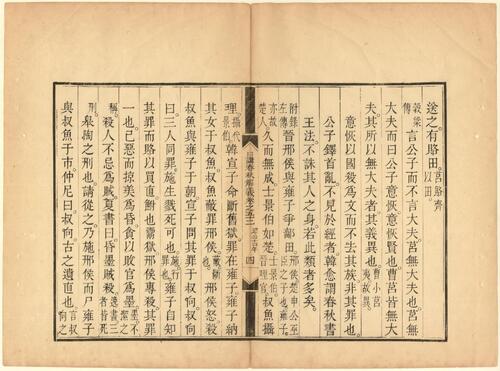 送之有賂田。莒賂齊以田。
穀梁傳言公子而不言大夫莒無大夫也莒無
大夫而曰公子意恢意恢賢也曹莒皆無大
夫其所以無大夫者其義異也。曹小莒夷故異。
意恢以國殺為文而不去其族非其罪也。
公子鐸首亂不見於經者韓愈謂春秋書
王法不誅其人之身若此類者多矣。
附錄左傳晉邢侯與雍子爭鄐田。邢侯楚申公巫臣之子也。雍子
亦故楚人。久而無成士景伯如楚。士景伯晉理官。叔魚攝
講春秋解義卷之五十二 昭公十四年 四
理。攝代景伯。韓宣子命斷舊獄罪在雍子雍子納
其女于叔魚叔魚蔽罪邢侯。蔽斷也。邢侯怒殺
叔魚與雍子于朝宣子問其罪于叔向叔向
曰三人同罪施生戮死可也。施行罪也。雍子自知
其罪而賂以買直鮒也鬻獄邢侯專殺其罪
一也己惡而掠美為昏貪以敗官為墨。墨不潔之
稱。殺人不忌為賊夏書曰昏墨賊殺。逸書三者皆死
刑。皋陶之刑也請從之乃施邢侯而尸雍子
與叔魚于市仲尼曰叔向古之遺直也。